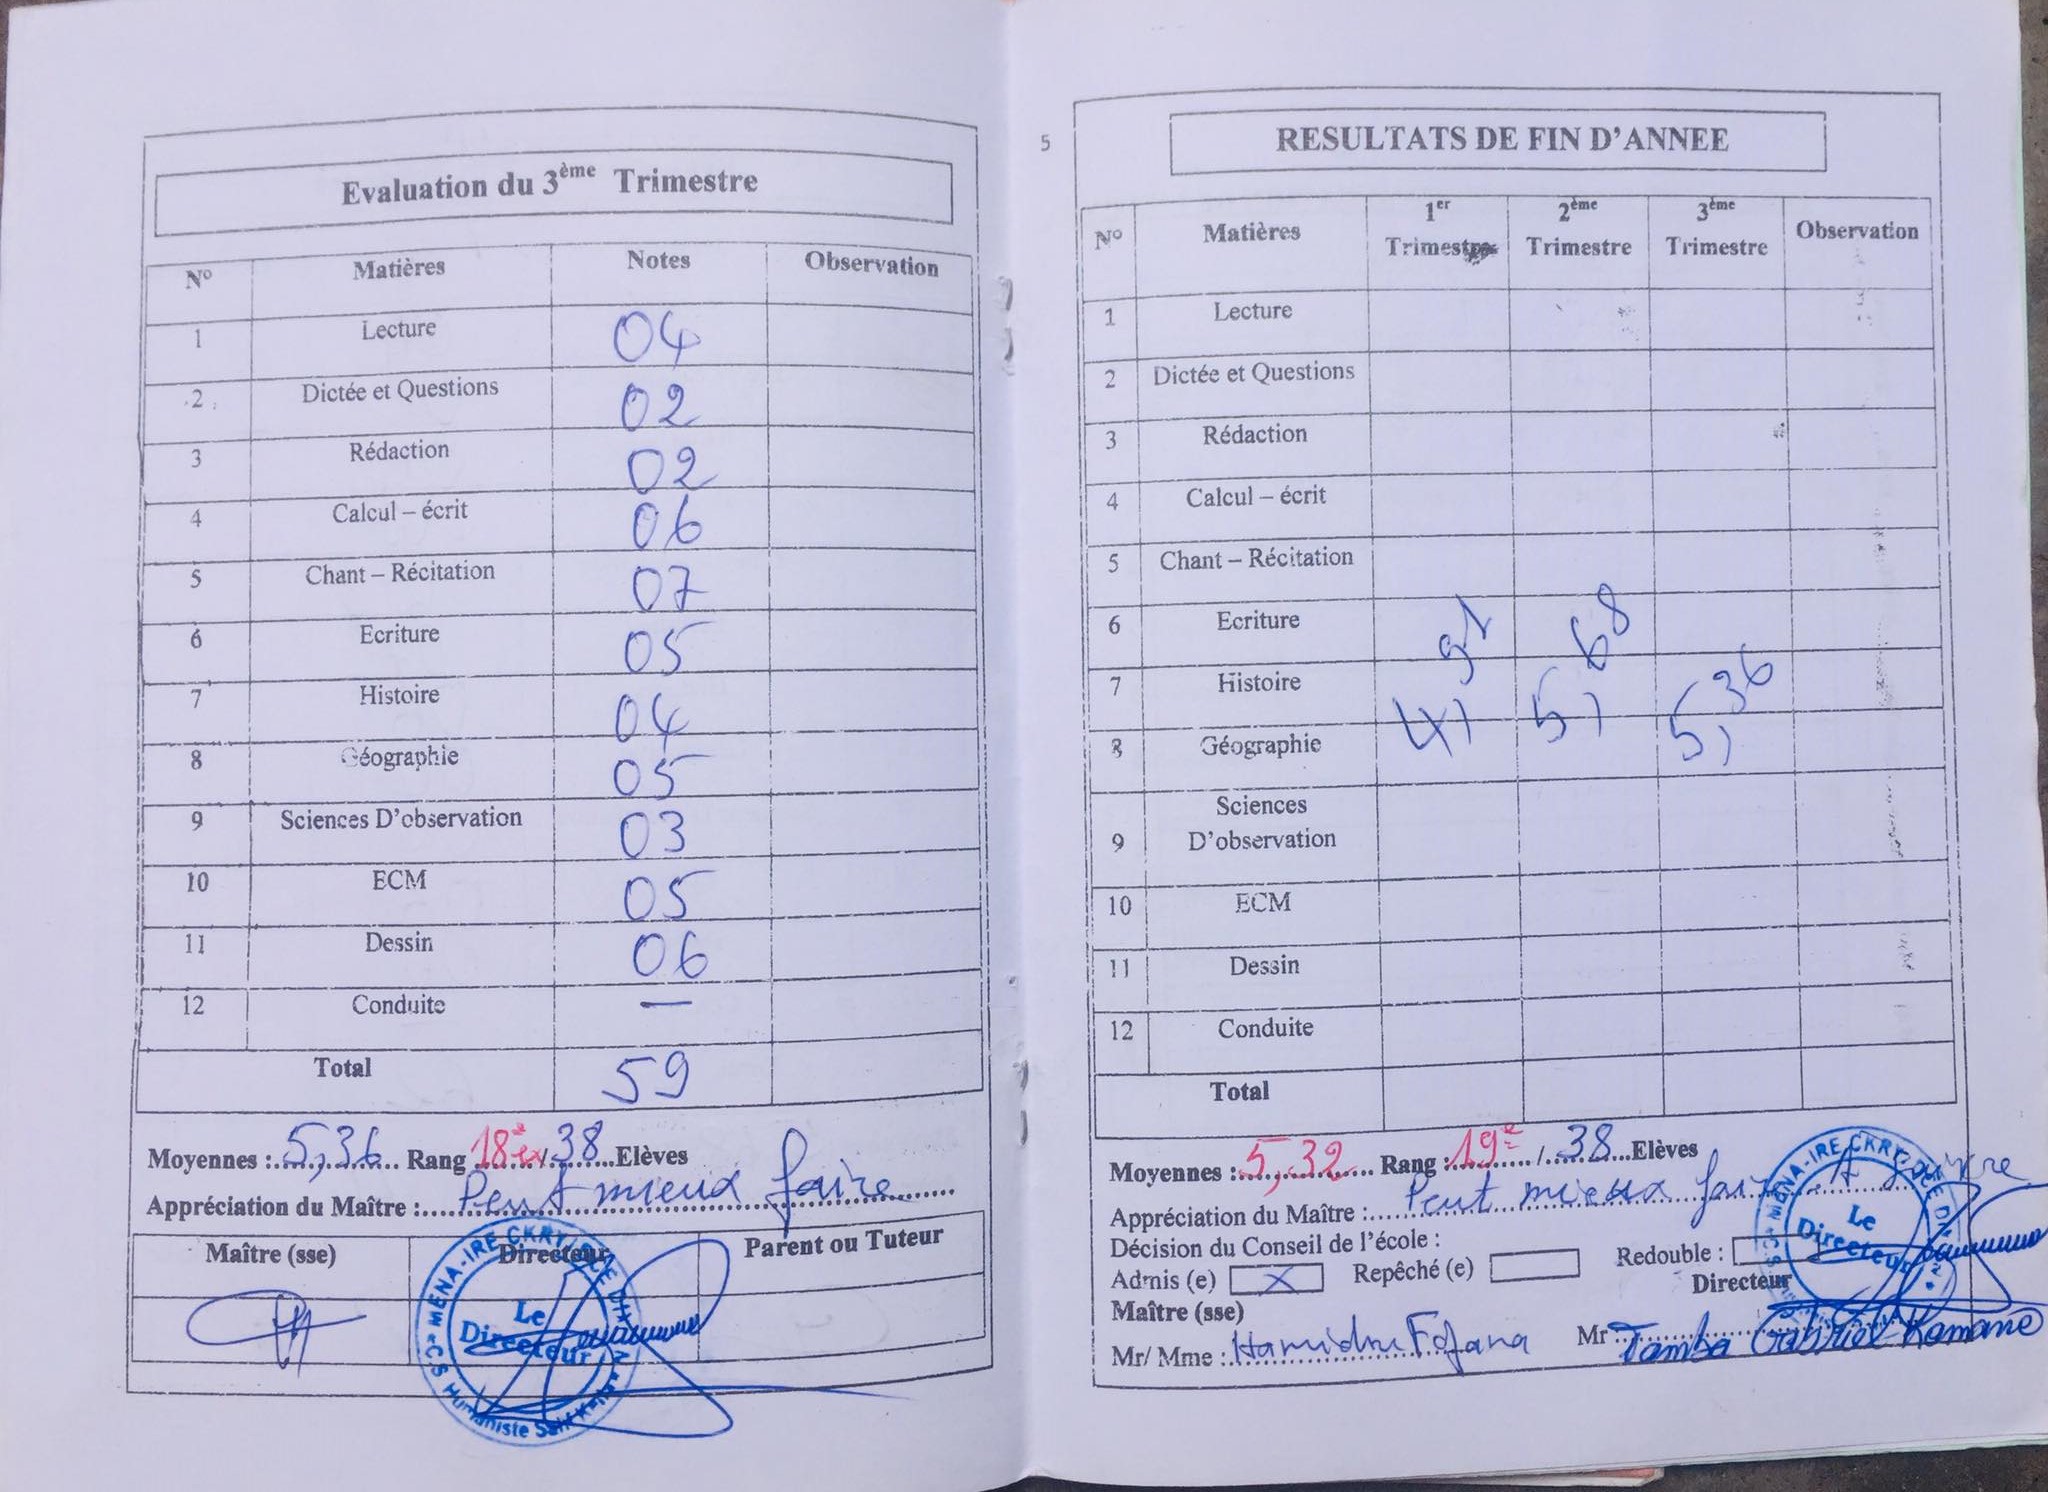 Evaluation du 3ème Trimestre
N° Matières Notes Observation
1 Lecture 04
2 Dictée et Questions 02
3 Rédaction 02
4 Calcul – écrit 06
5 Chant – Récitation 07
6 Ecriture 05
7 Histoire 04
8 Géographie 05
9 Sciences D'observation 03
10 ECM 05
11 Dessin 06
12 Conduite —
Total 59
Moyennes : 5,36 Rang 18e / 38 Elèves
Appréciation du Maître : Peut mieux faire
Maître (sse) Directeur Parent ou Tuteur
MENA-IRE CKRY
Le
Directeur
5
RESULTATS DE FIN D'ANNEE
N° Matières 1er Trimestre 2ème Trimestre 3ème Trimestre Observation
1 Lecture
2 Dictée et Questions
3 Rédaction
4 Calcul – écrit
5 Chant – Récitation
6 Ecriture
7 Histoire
8 Géographie
5,68 5,36
9 Sciences
D'observation
10 ECM
11 Dessin
12 Conduite
Total
Moyennes : 5,32 Rang : 19e / 38 Elèves
Appréciation du Maître : Peut mieux
Décision du Conseil de l'école :
Admis (e) X Repêché (e) Redouble :
Maître (sse) Directeur
Mr/ Mme : Fofana Mr : Tamba Gabriel Kamano
MENA-IRE CKRY
Le
Directeur